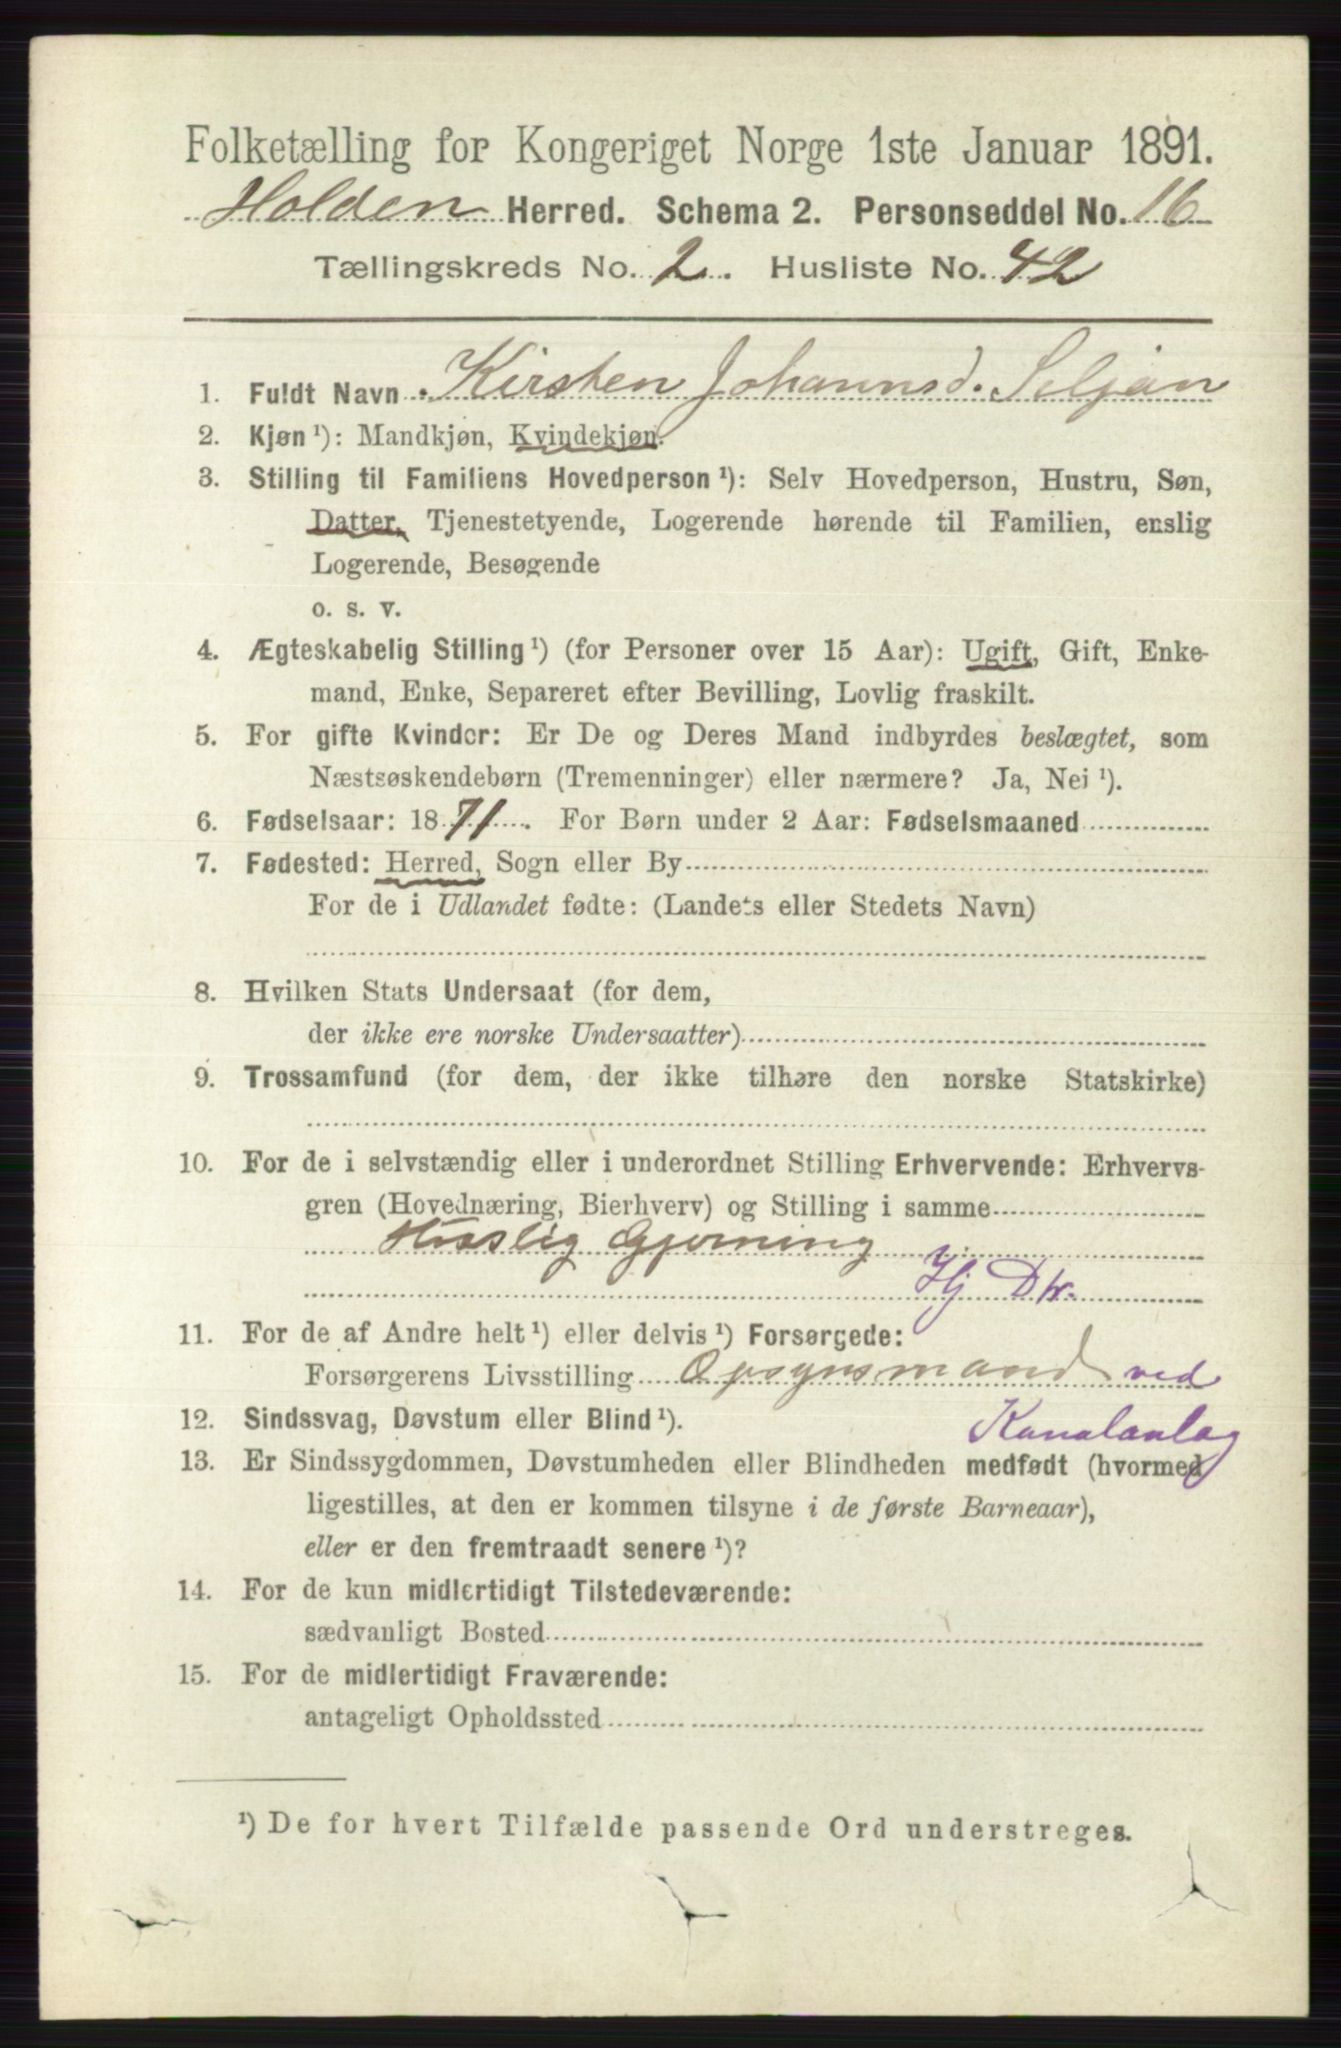 Folketælling for Kongeriget Norge 1ste Januar 1891.
Holden Herred. Schema 2. Personseddel No. 16
Tællingskreds No. 2. Husliste No. 42
1. Fuldt Navn Kirsten Johannsd. Seljan
2. Kjøn ¹): Mandkjøn, Kvindekjøn.
3. Stilling til Familiens Hovedperson ¹): Selv Hovedperson, Hustru, Søn,
Datter, Tjenestetyende, Logerende hørende til Familien, enslig
Logerende, Besøgende
o. s. v.
4. Ægteskabelig Stilling ¹) (for Personer over 15 Aar): Ugift, Gift, Enke-
mand, Enke, Separeret efter Bevilling, Lovlig fraskilt.
5. For gifte Kvinder: Er De og Deres Mand indbyrdes beslægtet, som
Næstsøskendebørn (Tremenninger) eller nærmere? Ja, Nei ¹).
6. Fødselsaar: 1871. For Børn under 2 Aar: Fødselsmaaned
7. Fødested: Herred, Sogn eller By
For de i Udlandet fødte: (Landets eller Stedets Navn)
8. Hvilken Stats Undersaat (for dem,
der ikke ere norske Undersaatter)
9. Trossamfund (for dem, der ikke tilhøre den norske Statskirke)
10. For de i selvstændig eller i underordnet Stilling Erhvervende: Erhvervs-
gren (Hovednæring, Bierhverv) og Stilling i samme
Huslig Gjerning
Hj Dtr.
11. For de af Andre helt ¹) eller delvis ¹) Forsørgede:
Forsørgerens Livsstilling Opsynsmand ved
Kanalanlag
12. Sindssvag, Døvstum eller Blind ¹).
13. Er Sindssygdommen, Døvstumheden eller Blindheden medfødt (hvormed
ligestilles, at den er kommen tilsyne i de første Barneaar),
eller er den fremtraadt senere ¹)?
14. For de kun midlertidigt Tilstedeværende:
sædvanligt Bosted
15. For de midlertidigt Fraværende:
antageligt Opholdssted
¹) De for hvert Tilfælde passende Ord understreges.